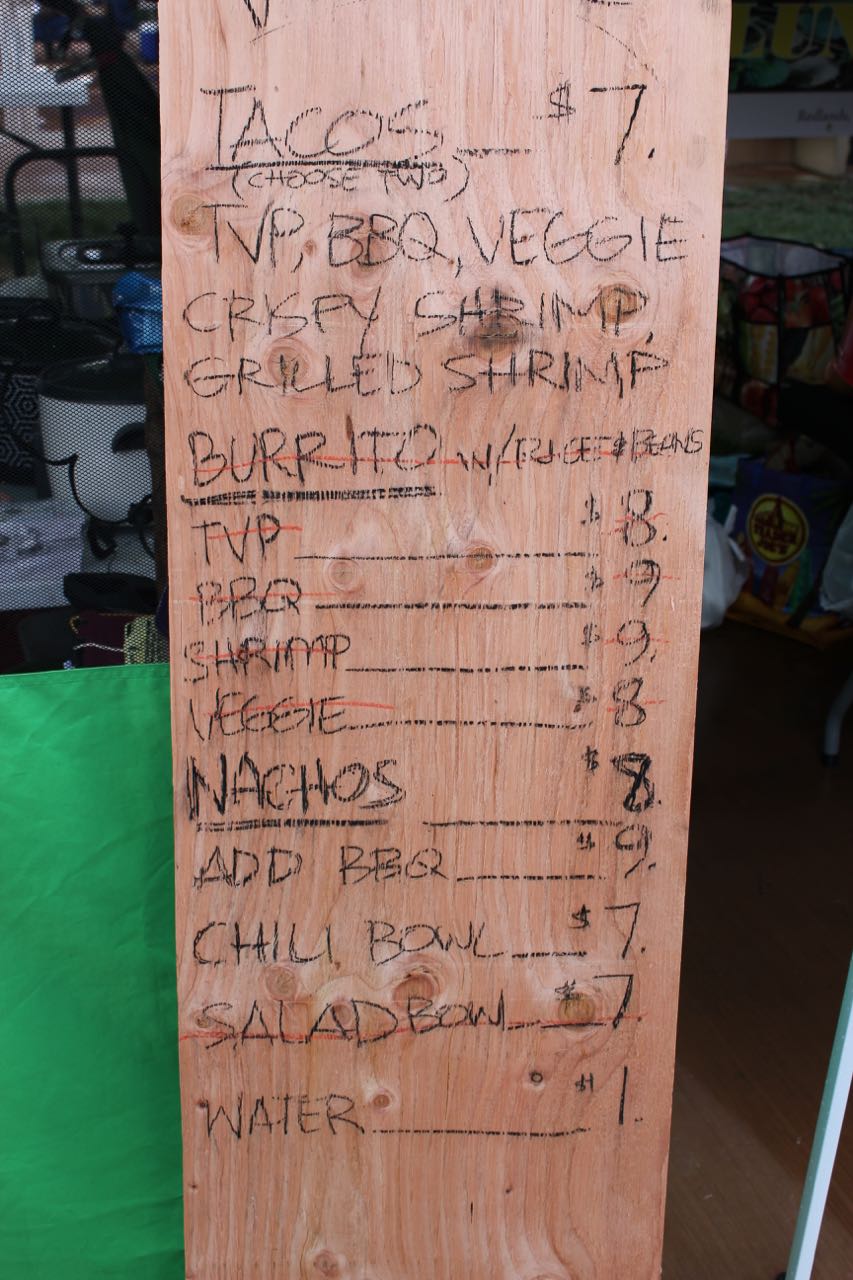 TACOS $7.
(CHOOSE TWO)
TVP, BBQ, VEGGIE
CRISPY SHRIMP,
GRILLED SHRIMP
BURRITO W/RICE & BEANS
TVP $8.
BBQ $9
SHRIMP $9.
VEGGIE $8
NACHOS $8.
ADD BBQ $9.
CHILI BOWL $7.
SALAD BOWL $7.
WATER $1.
Redlands